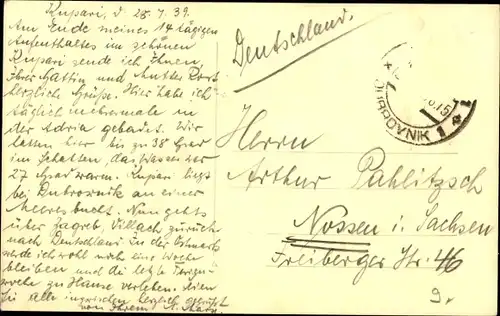 Kupari, d. 28.7.39.
Am Ende meines 14 tägigen
Aufenthaltes im schönen
Kupari sende ich Ihnen,
Ihrer Gattin und Mutter
herzliche Grüße. Hier habe ich
täglich mehrmale in
der Adria gebadet. Wir
hatten hier bis zu 38 Grad
im Schatten, das Wasser war
27 Grad warm. Kupari liegt
bei Dubrovnik an einer
Meeresbucht. Nun gehts
über Zagreb, Villach zurück
nach Deutschland. In der Ostmark
werde ich wohl noch eine Woche
bleiben und die letzte
woche zu Hause verleben. Seien
Sie alle inzwischen herzlich gegrüßt
von Ihrem
Deutschland.
DUBROVNIK 1
Herrn
Arthur Pahlitzsch
Nossen i. Sachsen
Freiberger Str. 46
9.